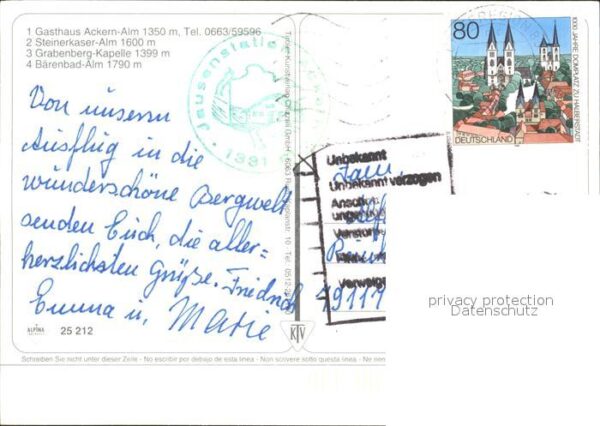 1 Gasthaus Ackern-Alm 1350 m, Tel. 0663/59596
2 Steinerkaser-Alm 1600 m
3 Grabenberg-Kapelle 1399 m
4 Bärenbad-Alm 1790 m
Von unserm
Ausflug in die
wunderschöne Bergwelt
senden Euch, die aller=
herzlichsten Grüße. Friedrich
Emma u. Marie
ALPINA
25 212
Jausenstation
KTV
80
1000 JAHRE DOMPLATZ ZU HALBERSTADT
DEUTSCHLAND
Unbekannt
Unbekannt verzogen
Fam.
49117
privacy protection
Datenschutz
Schreiben Sie nicht unter dieser Zeile - No escribir por debajo de esta linea - Non scrivere sotto questa linea - Ne